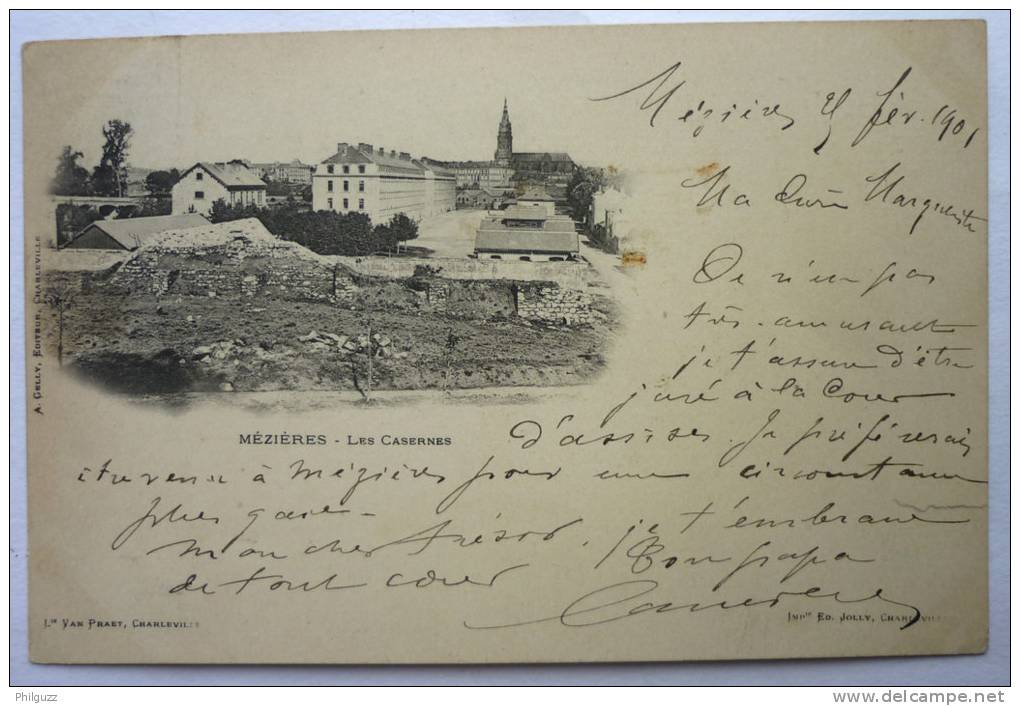 Mézières fév. 1901
Ma Marguerite
Ce n'est pas
très amusant
je t'assure d'être
juré à la Cour
d'assises. Je préférerais
être venu à Mézières pour une circonstance
plus gaie -
Mon cher trésor, je t'embrasse
de tout cœur Bon papa
MÉZIÈRES - LES CASERNES
A. GELLY, EDITEUR, CHARLEVILLE
Lie VAN PRAET, CHARLEVILLE
IMPie ED. JOLLY, CHARLEVILLE
Philguzz
http://www.delcampe.net